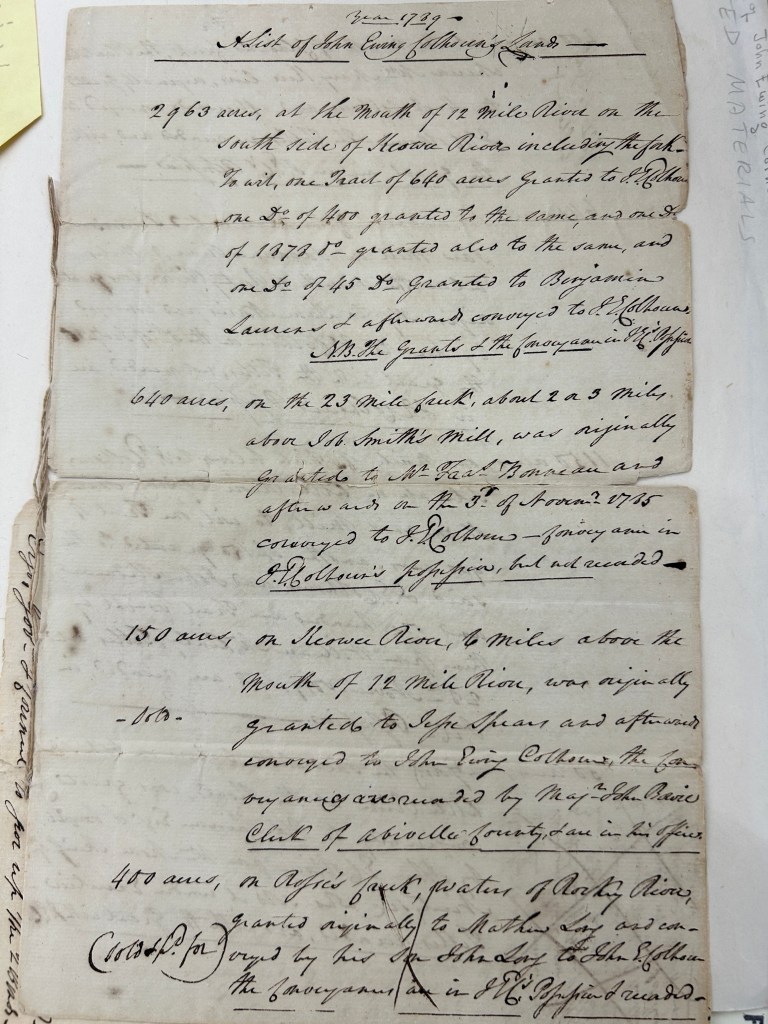 Year 1789
A List of John Ewing Colhoun's Lands
2963 acres, at the Mouth of 12 Mile River on the
south side of Keowee River including the fork
To wit, one Tract of 640 acres granted to J. E. Colhoun
one Do. of 400 granted to the same, and one Do.
of 1878 do granted also to the same, and
one Do. of 45 Do. granted to Benjamin
Laurens & afterwards conveyed to J. E. Colhoun.
N.B. The Grants & the Conveyance in J E C's Possession
640 acres, on the 23 Mile Creek, about 2 or 3 Miles
above Job Smith's Mill, was originally
granted to Mr. Bonneau and
afterwards on the 3d of Novemr. 1785
conveyed to J. E. Colhoun - Conveyance in
J. E. Colhoun's Possession, but not recorded
150 acres, on Keowee River, 6 miles above the
Mouth of 12 Mile River, was originally
- Sold - granted to Jesse Spears and afterwards
conveyed to John Ewing Colhoun, the Con
veyances are recorded by Majr. John Bowie
Clerk of Abbeville County, & are in his office
400 acres, on Rosse's Creek, waters of Rocky River,
granted originally to Mathew Long and con-
(Sold & pd. for) veyed by his son John Long to John E. Colhoun
the Conveyances are in J E C's Possession & recorded
of John Ewing
ED MATERIALS